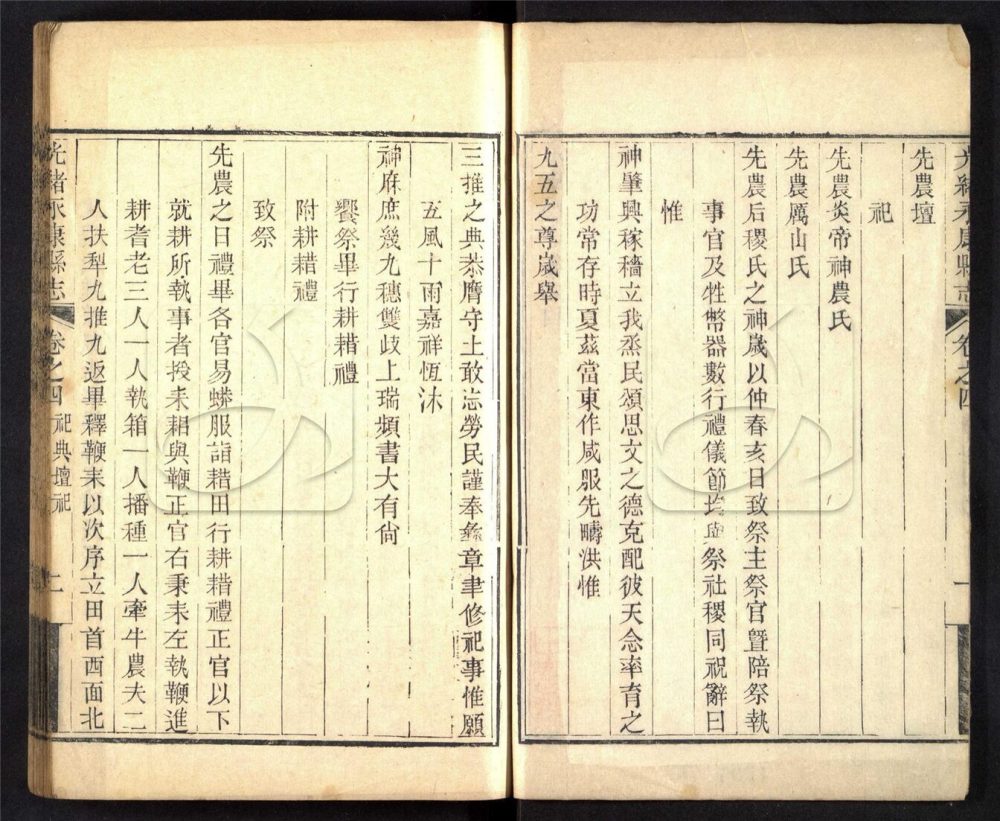 光緒永康縣志 卷之四 一
先農壇
祀
先農炎帝神農氏
先農厲山氏
先農后稷氏之神歲以仲春亥日致祭主祭官暨陪祭執
事官及牲幣器數行禮儀節均與祭社稷同祝辭曰
惟
神肇興稼穡立我烝民頌思文之德克配彼天念率育之
功常存時夏茲當東作咸服先疇洪惟
九五之尊歲舉
三推之典恭膺守土敢忘勞民謹奉彝章聿修祀事惟願
五風十雨嘉祥恆沐
神庥庶幾九穗雙歧上瑞頻書大有尙
饗祭畢行耕耤禮
附耕耤禮
致祭
先農之日禮畢各官易蟒服詣耤田行耕耤禮正官以下
就耕所執事者授耒耜與鞭正官右秉耒左執鞭進
耕耆老三人一人執箱一人播種一人牽牛農夫二
人扶犁九推九返畢釋鞭耒以次序立田首西面北
光緒永康縣志 卷之四 祀典壇祀 二